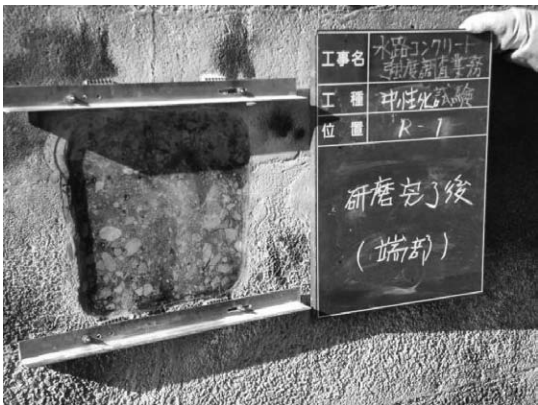 工事名 水路コンクリート
強度調査業務
工種 中性化試験
位置 R-1
研磨完了後
(端部)